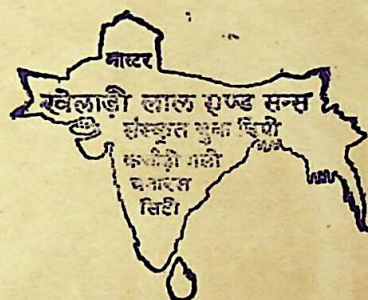 मास्टर
खेलाड़ी लाल एण्ड सन्स
संस्कृत बुक डिपो
कचौड़ी गली
बनारस
सिटी।